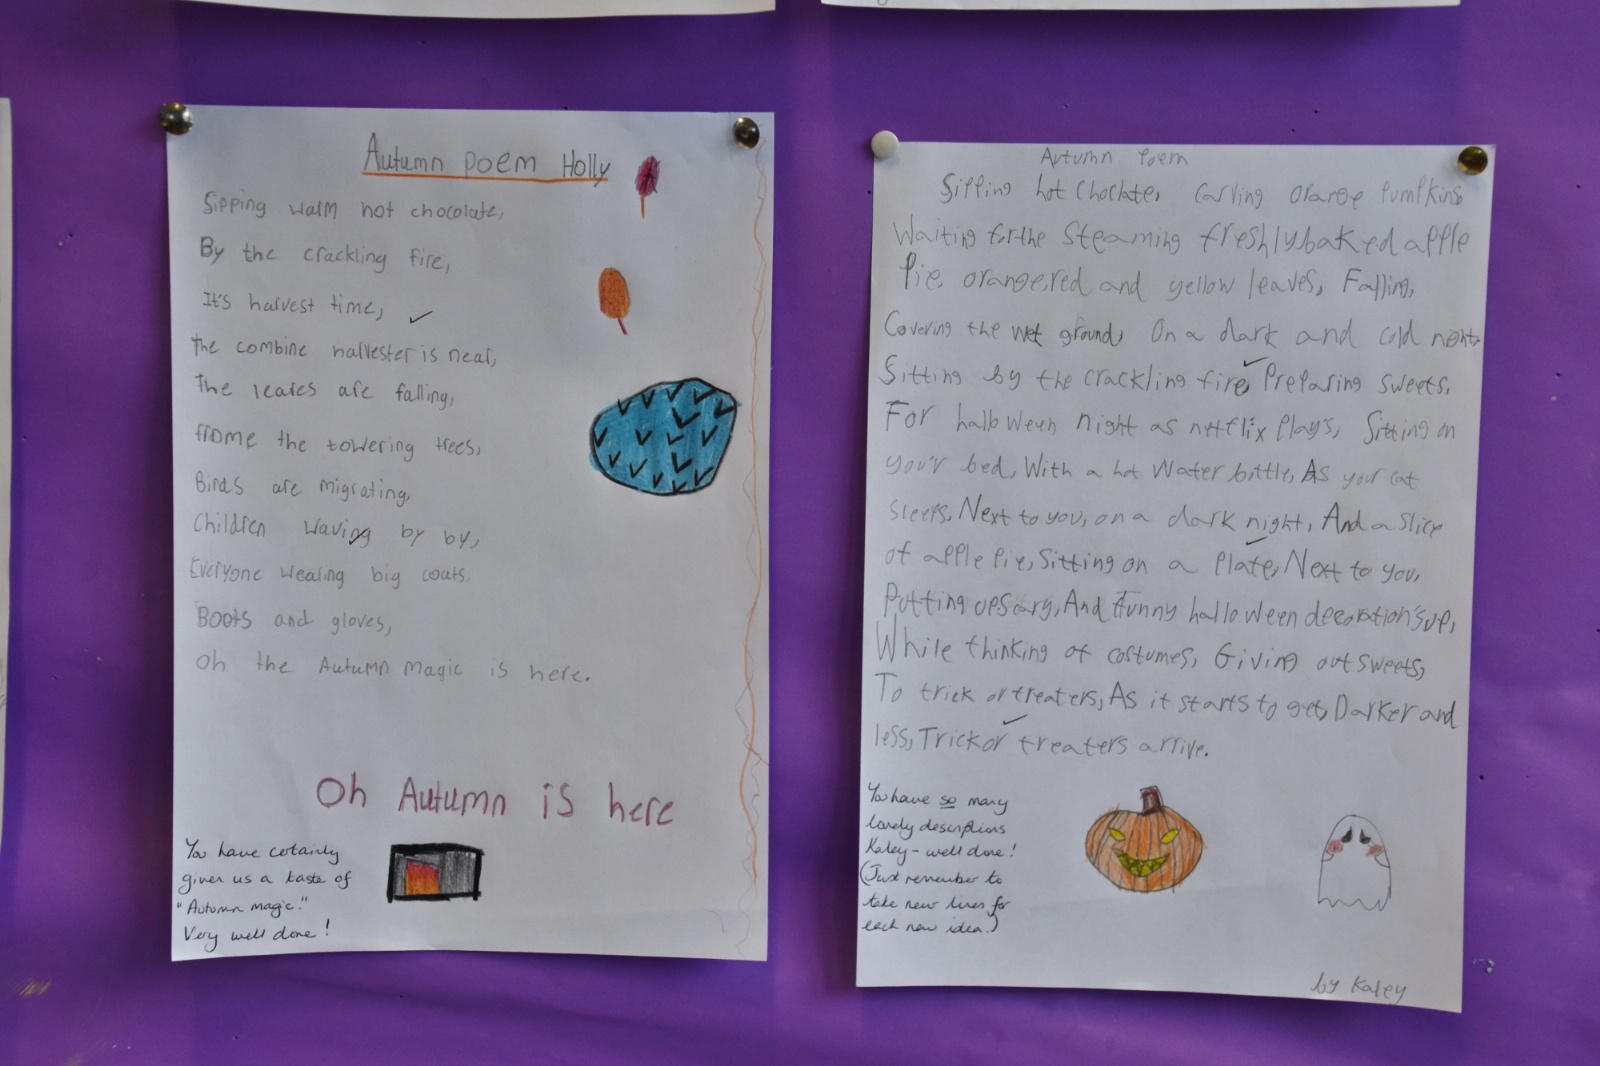 Autumn poem Holly
Sipping warm hot chocolate,
By the crackling fire,
It's harvest time,
the combine harvester is near,
The leares are falling,
frome the towering trees,
Birds are migrating,
Children waving by by,
Everyone wearing big coats.
Boots and gloves,
Oh the Autumn magic is here.
Oh Autumn is here
You have certainly
given us a taste of
"Autumn magic."
Very well done!
Autumn Poem
Sipping hot choclate, Carving orange Pumpkins
Waiting for the Steaming freshly baked apple
Pie, orange, red and yellow leaves, Falling,
Covering the wet ground, On a dark and cold night,
Sitting by the crackling fire, Preparing sweets,
For hallo ween night as netflix Play's, Sitting on
you'r bed, With a hot Water bottle, As your cat
sleeps, Next to you, on a dark night, And a slice
of apple Pie, Sitting on a Plate, Next to you,
Putting up scary, And Funny hallo ween decoration's up,
While thinking of costumes, Giving out sweets,
To trick or treaters, As it starts to get, Darker and
less, Trick or treaters arrive.
You have so many
lovely descriptions
Kaley - well done!
(Just remember to
take new lines for
each new idea.)
by Kaley